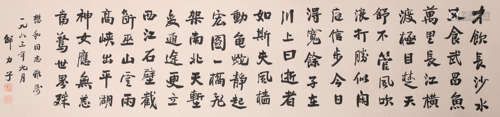 才飲長沙水
又食武昌魚
萬里長江橫
渡極目楚天
舒不管風吹
浪打勝似閑
庭信步今日
得寬餘子在
川上曰逝者
如斯夫風檣
動龜蛇靜起
宏圖一橋飛
架南北天塹
變通途更立
西江石壁截
斷巫山雲雨
高峽出平湖
神女應無恙
當驚世界殊
和同志雅
一九八三年九月
力子